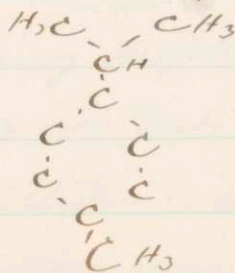 H3C CH3
CH
C
C C
C C
C
CH3